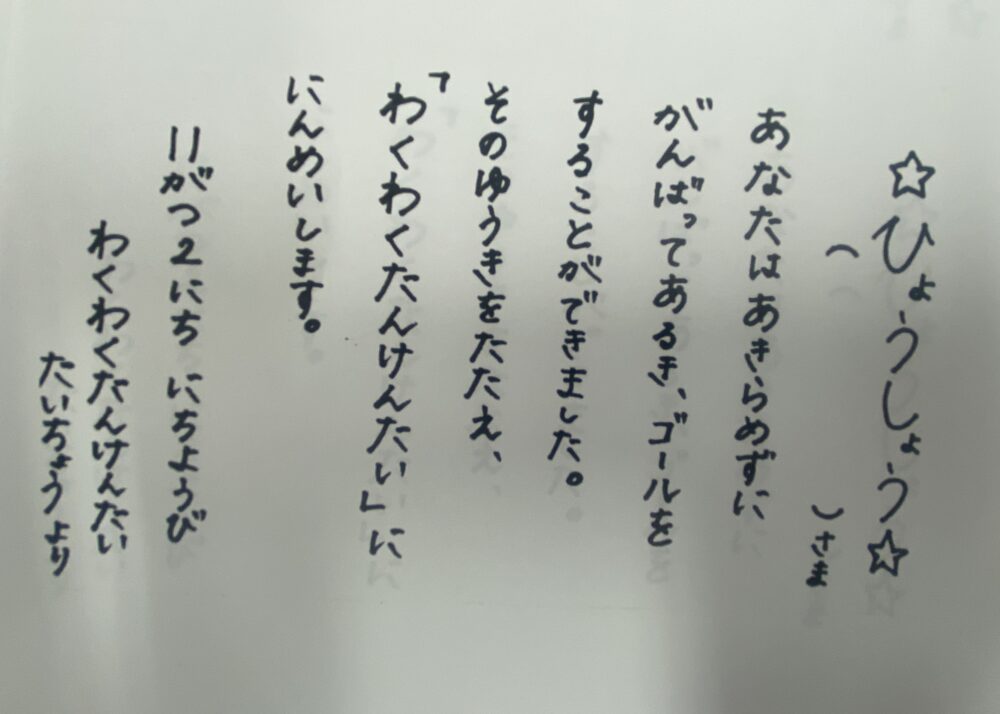 ☆ひょうしょう☆
（　　　）さま
あなたはあきらめずに
がんばってあるき、ゴールを
することができました。
そのゆうきをたたえ、
「わくわくたんけんたい」に
にんめいします。
11がつ2にち にちようび
わくわくたんけんたい
たいちょうより